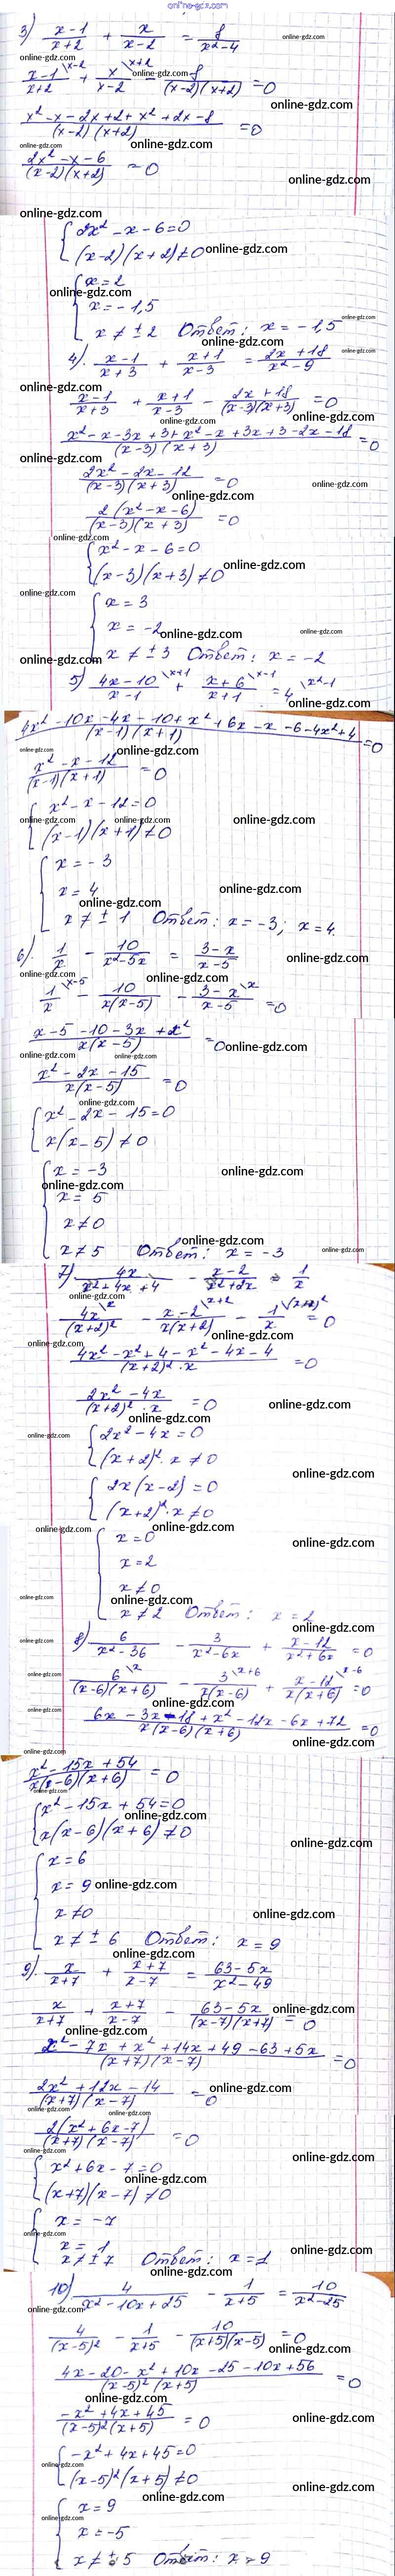 online-gdz.com
3) x-1/x+2 + x/x-2 = 8/x²-4
x-1\x-2/x+2 + x\x+2/x-2 - 8/(x-2)(x+2) =0
x²-x-2x+2+x²+2x-8/(x-2)(x+2) =0
2x²-x-6/(x-2)(x+2) =0
{2x²-x-6=0
(x-2)(x+2)≠0
{x=2
x=-1,5
x≠±2 Ответ: x=-1,5
4). x-1/x+3 + x+1/x-3 = 2x+18/x²-9
x-1/x+3 + x+1/x-3 - 2x+18/(x-3)(x+3) =0
x²-x-3x+3+x²-x+3x+3-2x-18/(x-3)(x+3) =0
2x²-2x-12/(x-3)(x+3) =0
2(x²-x-6)/(x-3)(x+3) =0
{x²-x-6=0
(x-3)(x+3)≠0
{x=3
x=-2
x≠±3 Ответ: x=-2
5) 4x-10\x+1/x-1 + x+6\x-1/x+1 =4\x²-1
4x²-10x-4x-10+x²+6x-x-6-4x²+4/(x-1)(x+1) =0
x²-x-12/(x-1)(x+1) =0
{x²-x-12=0
(x-1)(x+1)≠0
{x=-3
x=4
x≠±1 Ответ: x=-3; x=4.
6). 1/x - 10/x²-5x = 3-x/x-5
1\x-5/x - 10/x(x-5) - 3-x\x/x-5 =0
x-5-10-3x+x²/x(x-5) =0
x²-2x-15/x(x-5) =0
{x²-2x-15=0
x(x-5)≠0
{x=-3
x=5
x≠0
x≠5 Ответ: x=-3
7) 4x/x²+4x+4 - x-2/x²+2x = 1/x
4x\x/(x+2)² - x-2\x+2/x(x+2) - 1\(x+2)²/x =0
4x²-x²+4-x²-4x-4/(x+2)²·x =0
2x²-4x/(x+2)²·x =0
{2x²-4x=0
(x+2)²·x≠0
{2x(x-2)=0
(x+2)²·x≠0
{x=0
x=2
x≠0
x≠2 Ответ: x=2
8) 6/x²-36 - 3/x²-6x + x-12/x²+6x =0
6\x/(x-6)(x+6) - 3\x+6/x(x-6) + x-12\x-6/x(x+6) =0
6x-3x-18+x²-12x-6x+72/x(x-6)(x+6) =0
x²-15x+54/x(x-6)(x+6) =0
{x²-15x+54=0
x(x-6)(x+6)≠0
{x=6
x=9
x≠0
x≠±6 Ответ: x=9
9). x/x+7 + x+7/x-7 = 63-5x/x²-49
x/x+7 + x+7/x-7 - 63-5x/(x-7)(x+7) =0
x²-7x+x²+14x+49-63+5x/(x+7)(x-7) =0
2x²+12x-14/(x+7)(x-7) =0
2(x²+6x-7)/(x+7)(x-7) =0
{x²+6x-7=0
(x+7)(x-7)≠0
{x=-7
x=1
x≠±7 Ответ: x=1
10) 4/x²-10x+25 - 1/x+5 = 10/x²-25
4/(x-5)² - 1/x+5 - 10/(x+5)(x-5) =0
4x-20-x²+10x-25-10x+56/(x-5)²(x+5) =0
-x²+4x+45/(x-5)²(x+5) =0
{-x²+4x+45=0
(x-5)²(x+5)≠0
{x=9
x=-5
x≠±5 Ответ: x=9